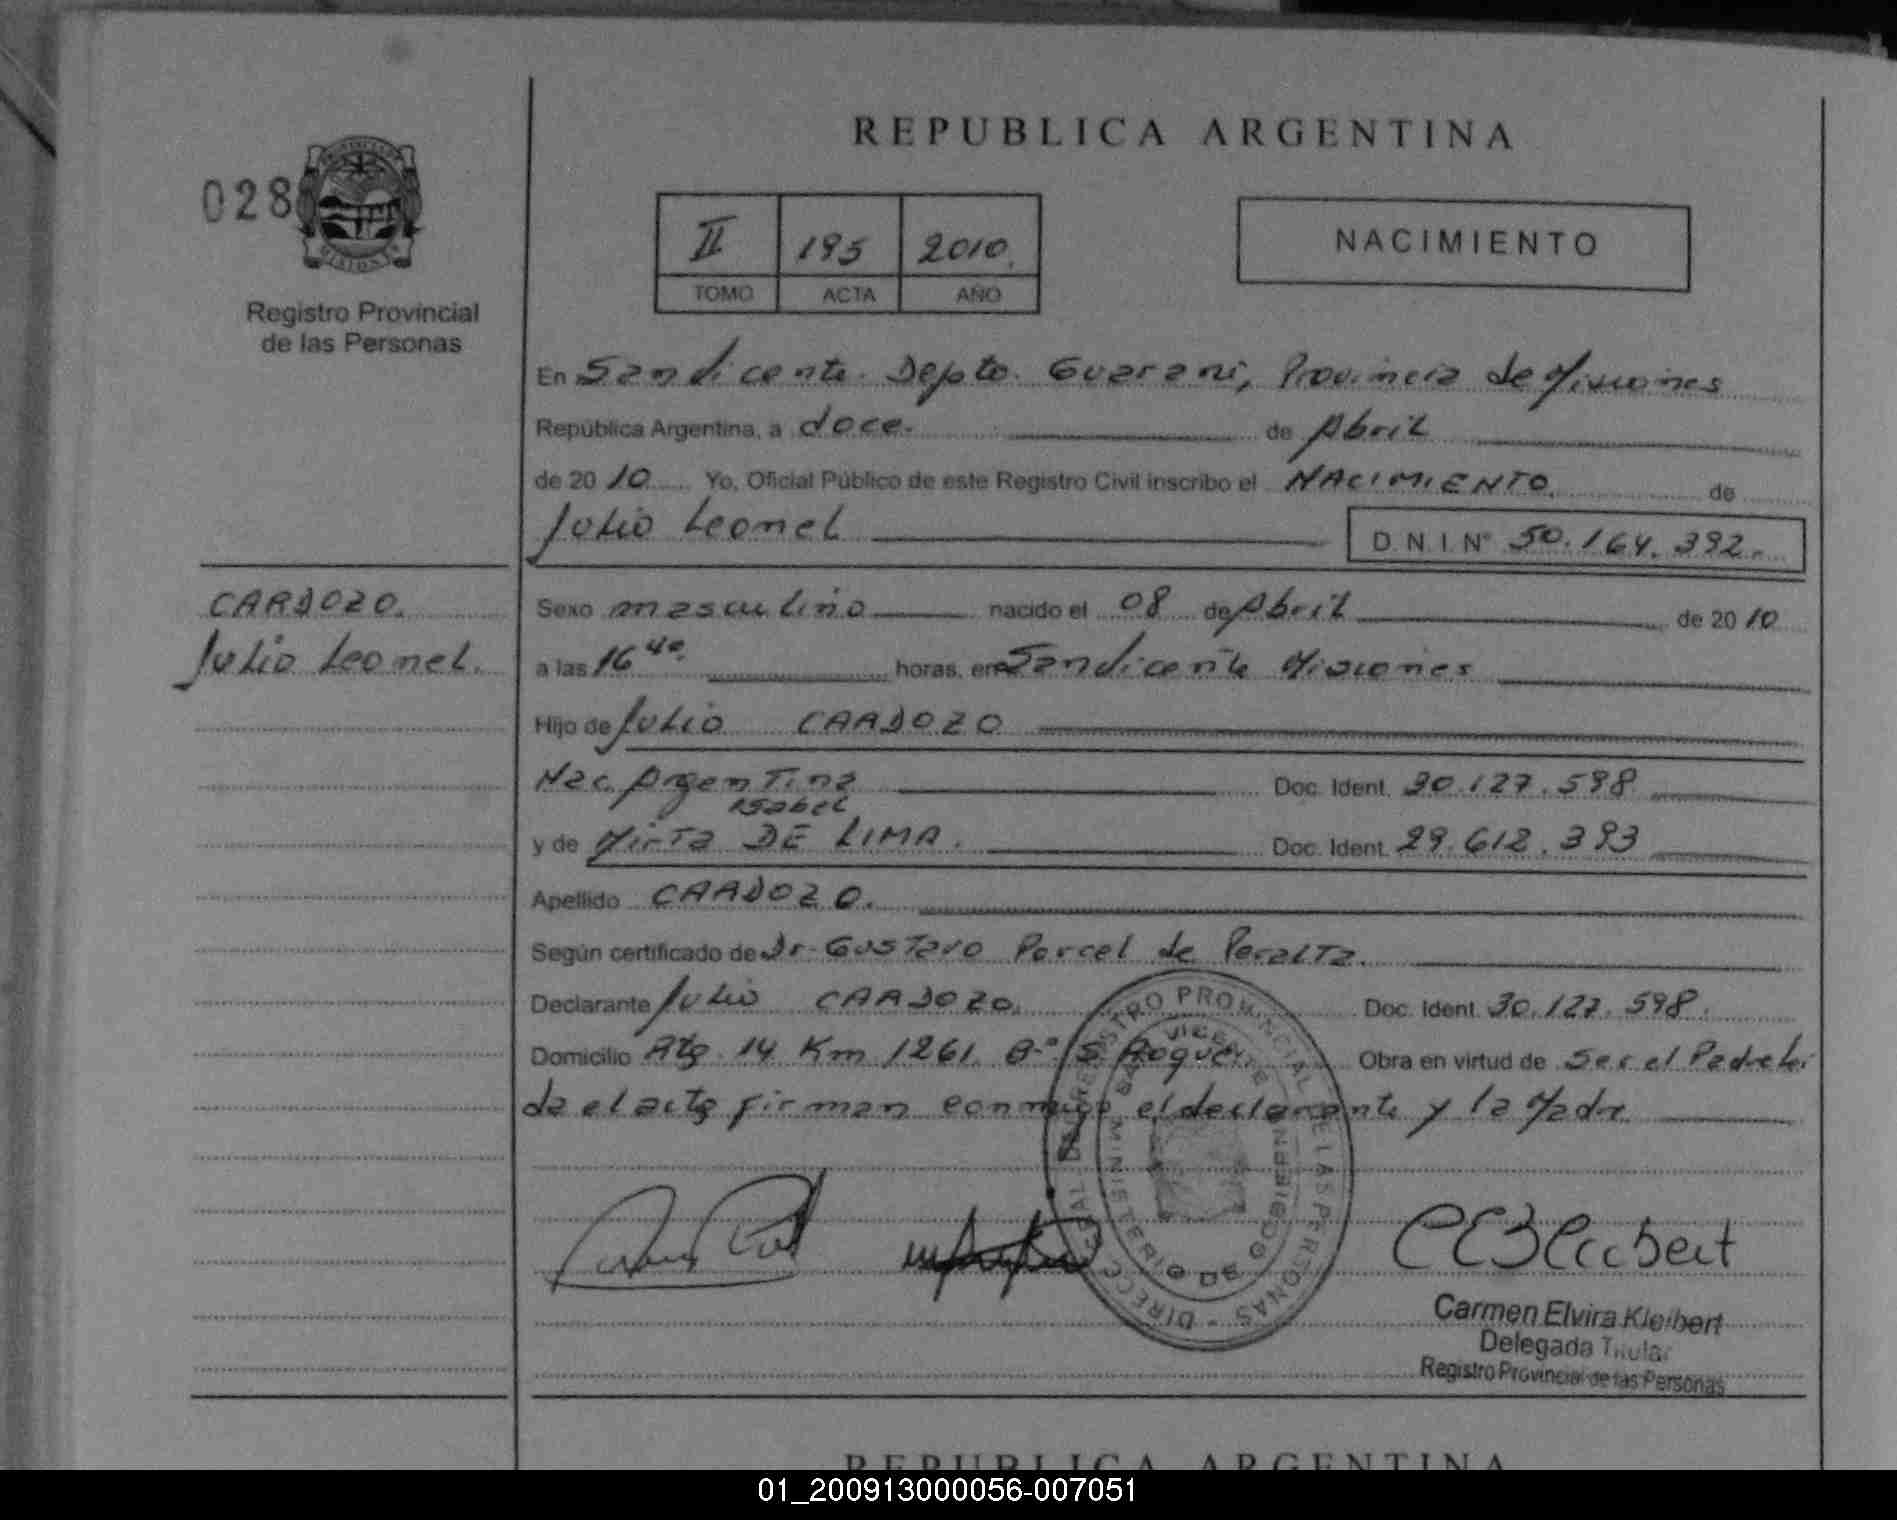 REPUBLICA ARGENTINA
028
Registro Provincial
de las Personas
II 195 2010.
TOMO ACTA AÑO
NACIMIENTO
En Sanvicente. Depto. Guarani, Provincia de Misiones
República Argentina, a doce. de Abril
de 2010 Yo, Oficial Público de este Registro Civil inscribo el NACIMIENTO. de
Julio Leonel
D.N.I. N° 50.164.392.
CARDOZO.
Julio Leonel.
Sexo masculino nacido el 08 de Abril de 2010
a las 16 40. horas, en Sanvicente Misiones
Hijo de Julio CARDOZO
Nac. Argentina Doc. Ident. 30.127.598
Isabel
y de Mirta DE LIMA. Doc. Ident. 29.612.393
Apellido CARDOZO.
Según certificado de Dr. Gustavo Porcel de Peralta.
Declarante Julio CARDOZO. Doc. Ident. 30.127.598.
Domicilio Rta. 14 Km 1261. B-° S. Roque. Obra en virtud de Ser el Padre Lei
da el acta firman conmigo el declarante y la Madre
DIRECC. GRAL. DE REGISTRO PROVINCIAL DE LAS PERSONAS
SAN VICENTE
MINISTERIO DE GOBIERNO
Carmen Elvira Kleibert
Delegada Titular
Registro Provincial de las Personas
REPUBLICA ARGENTINA
01_200913000056-007051